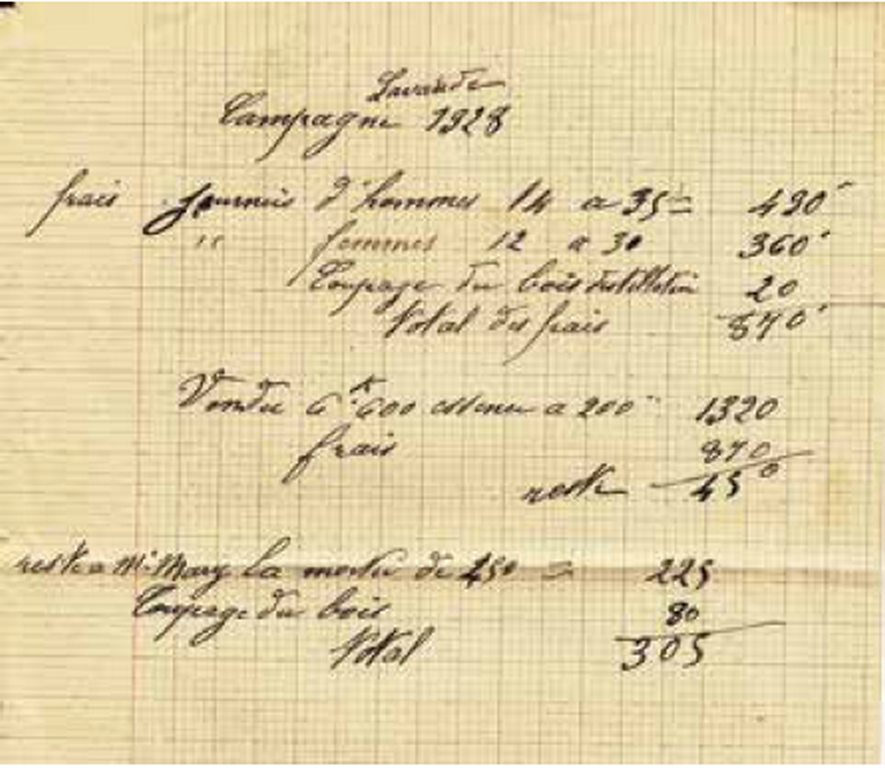 Lavande
Campagne 1928
frais journeis d'hommes 14 a 35 = 490
" femmes 12 a 30 360
Coupage du bois distillation 20
total des frais 870
Vendu 6K600 essence a 200 1320
frais 870
reste 450
reste a Mr Mary la moitie de 450 = 225
Coupage du bois 80
total 305